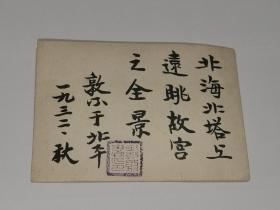 北海北塔上
遠眺故宮
之全景
敦 于北平
一九三二、秋